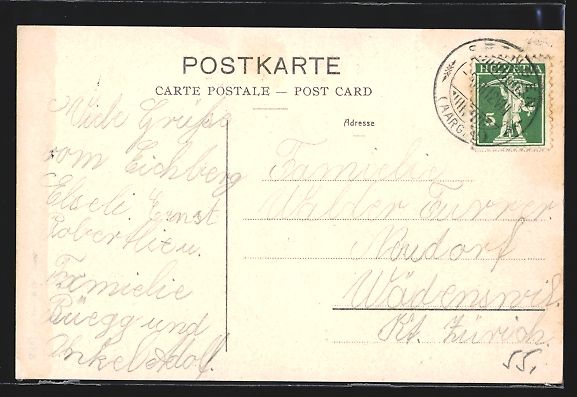 POSTKARTE
CARTE POSTALE — POST CARD
Adresse
HELVETIA
5
(AARG
Viele Grüße
vom Eichberg
Elseli Ernst
Robertli u.
Familie
Rüegg und
Onkel Adolf.
Familie
Walder Furrer
Neudorf
Wädenswil.
Kt. Zürich.
55.